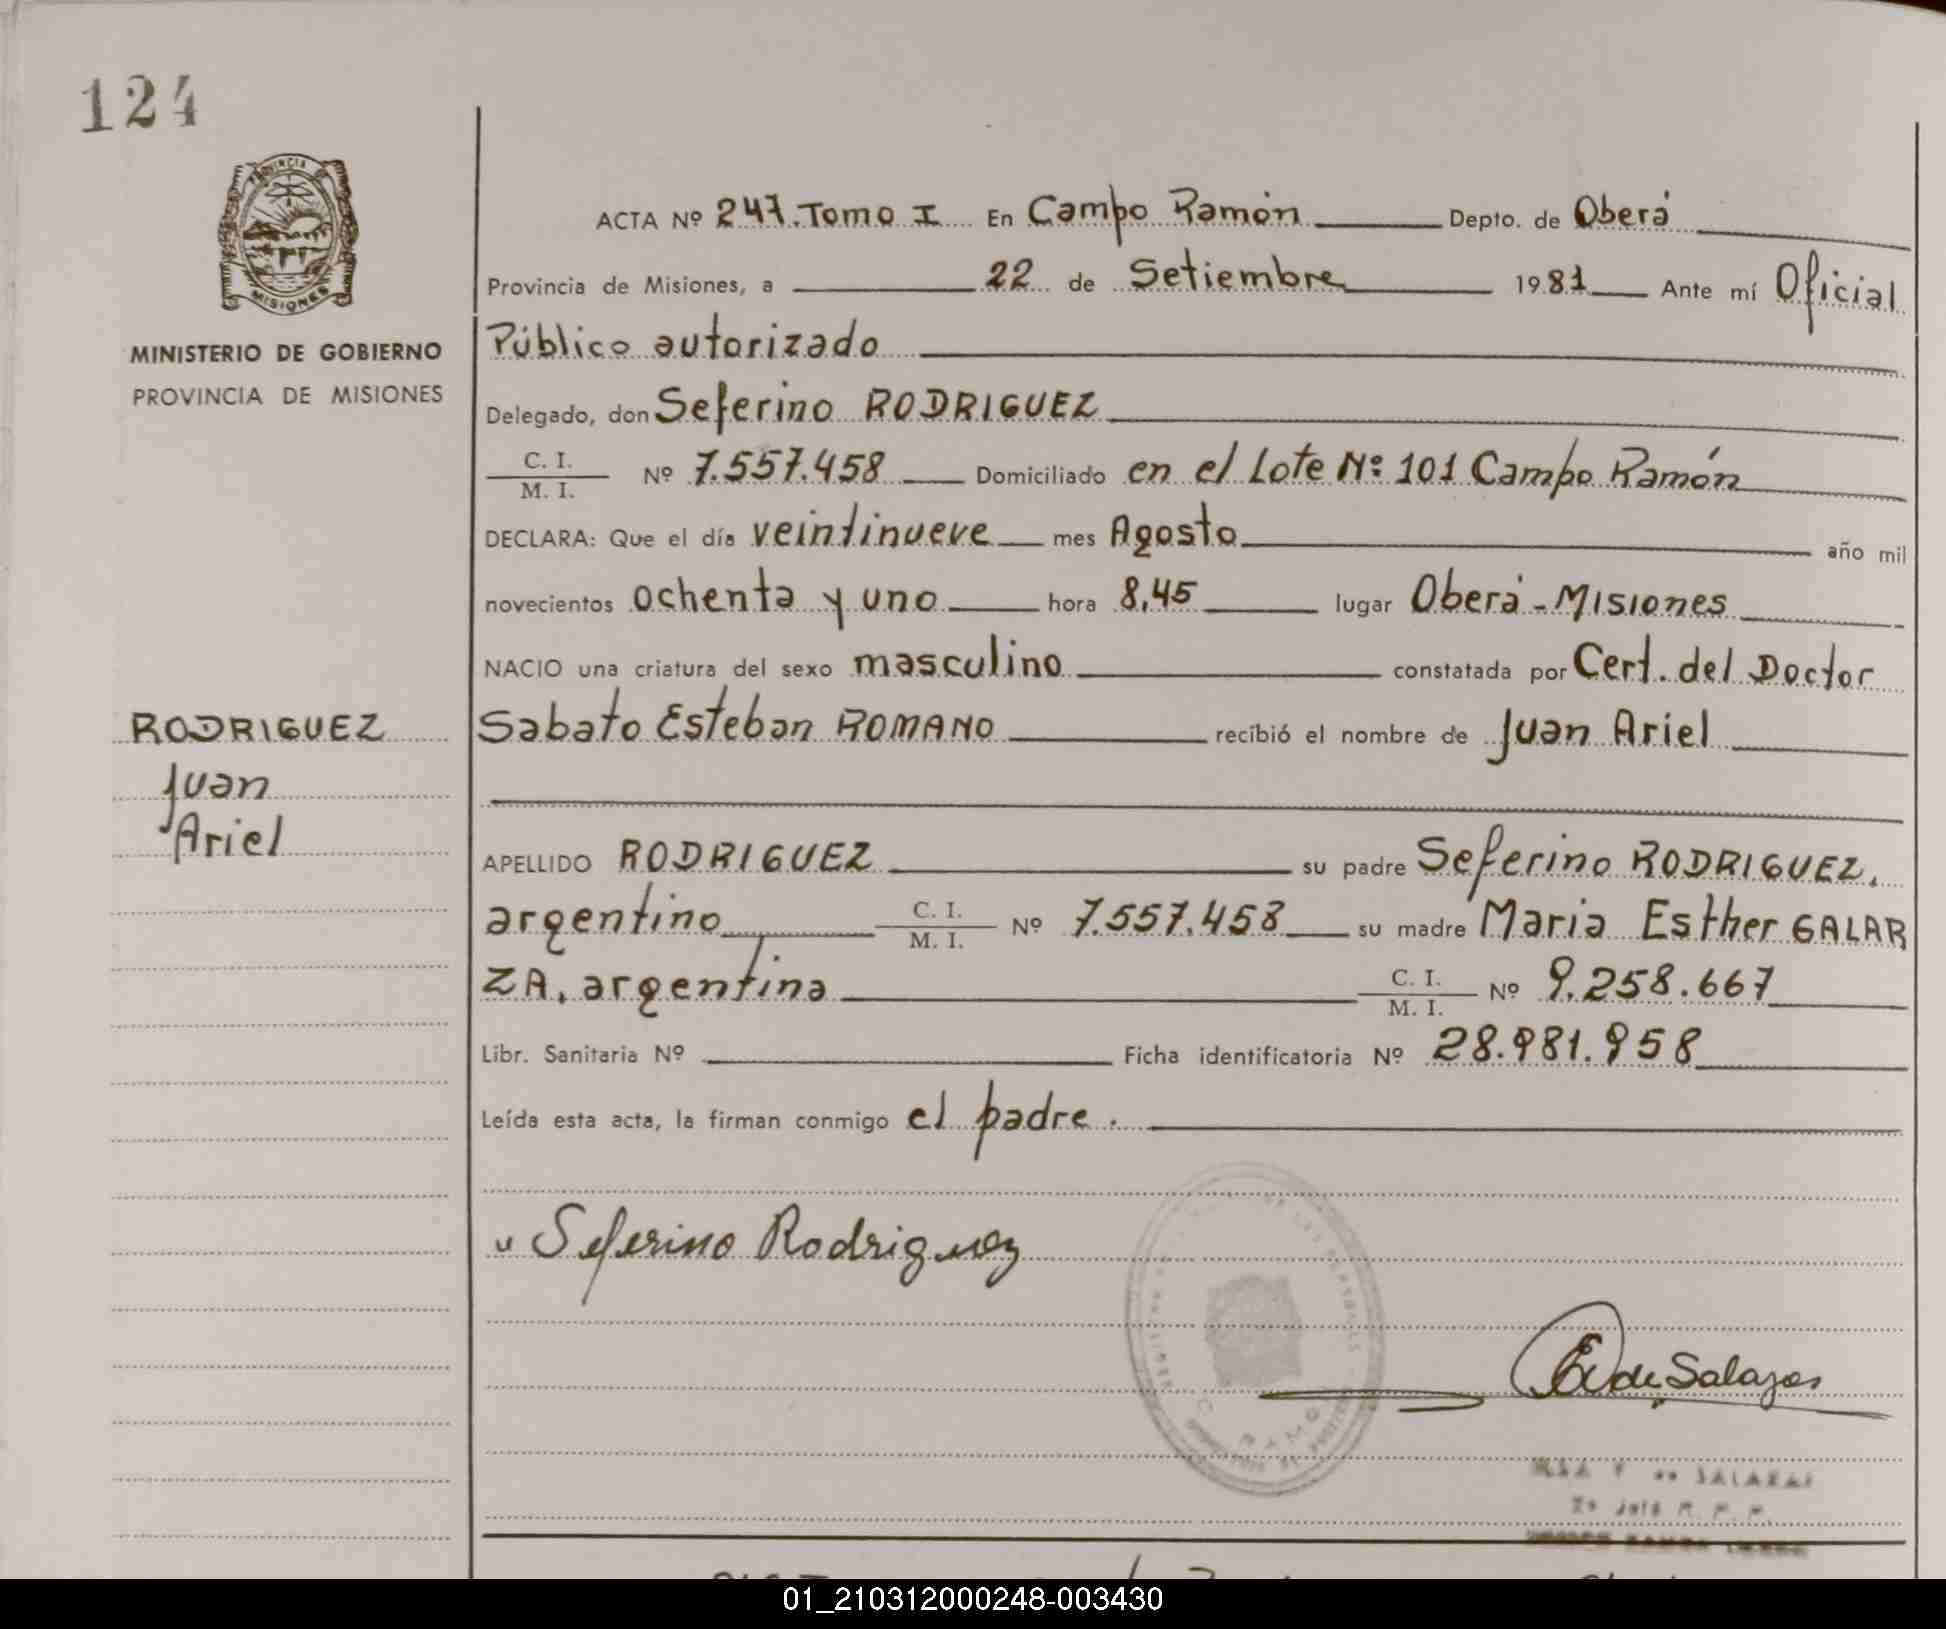 124
PROVINCIA
MISIONES
MINISTERIO DE GOBIERNO
PROVINCIA DE MISIONES
ACTA Nº 247. Tomo I En Campo Ramón Depto. de Oberá
Provincia de Misiones, a 22 de Setiembre 1981 Ante mí Oficial
Público autorizado
Delegado, don Seferino RODRIGUEZ
C. I.
M. I. Nº 7.557.458 Domiciliado en el Lote Nº 101 Campo Ramón
DECLARA: Que el día veintinueve mes Agosto año mil
novecientos ochenta y uno hora 8,45 lugar Oberá - Misiones
NACIO una criatura del sexo masculino constatada por Cert. del Doctor
Sabato Esteban ROMANO recibió el nombre de Juan Ariel
RODRIGUEZ
Juan
Ariel
APELLIDO RODRIGUEZ su padre Seferino RODRIGUEZ,
argentino C. I.
M. I. Nº 7.557.458 su madre Maria Esther GALAR
ZA, argentina C. I.
M. I. Nº 9.258.667
Libr. Sanitaria Nº Ficha identificatoria Nº 28.981.958
Leída esta acta, la firman conmigo el padre.
Seferino Rodriguez
de Salazar
de SALAZAR
01_210312000248-003430